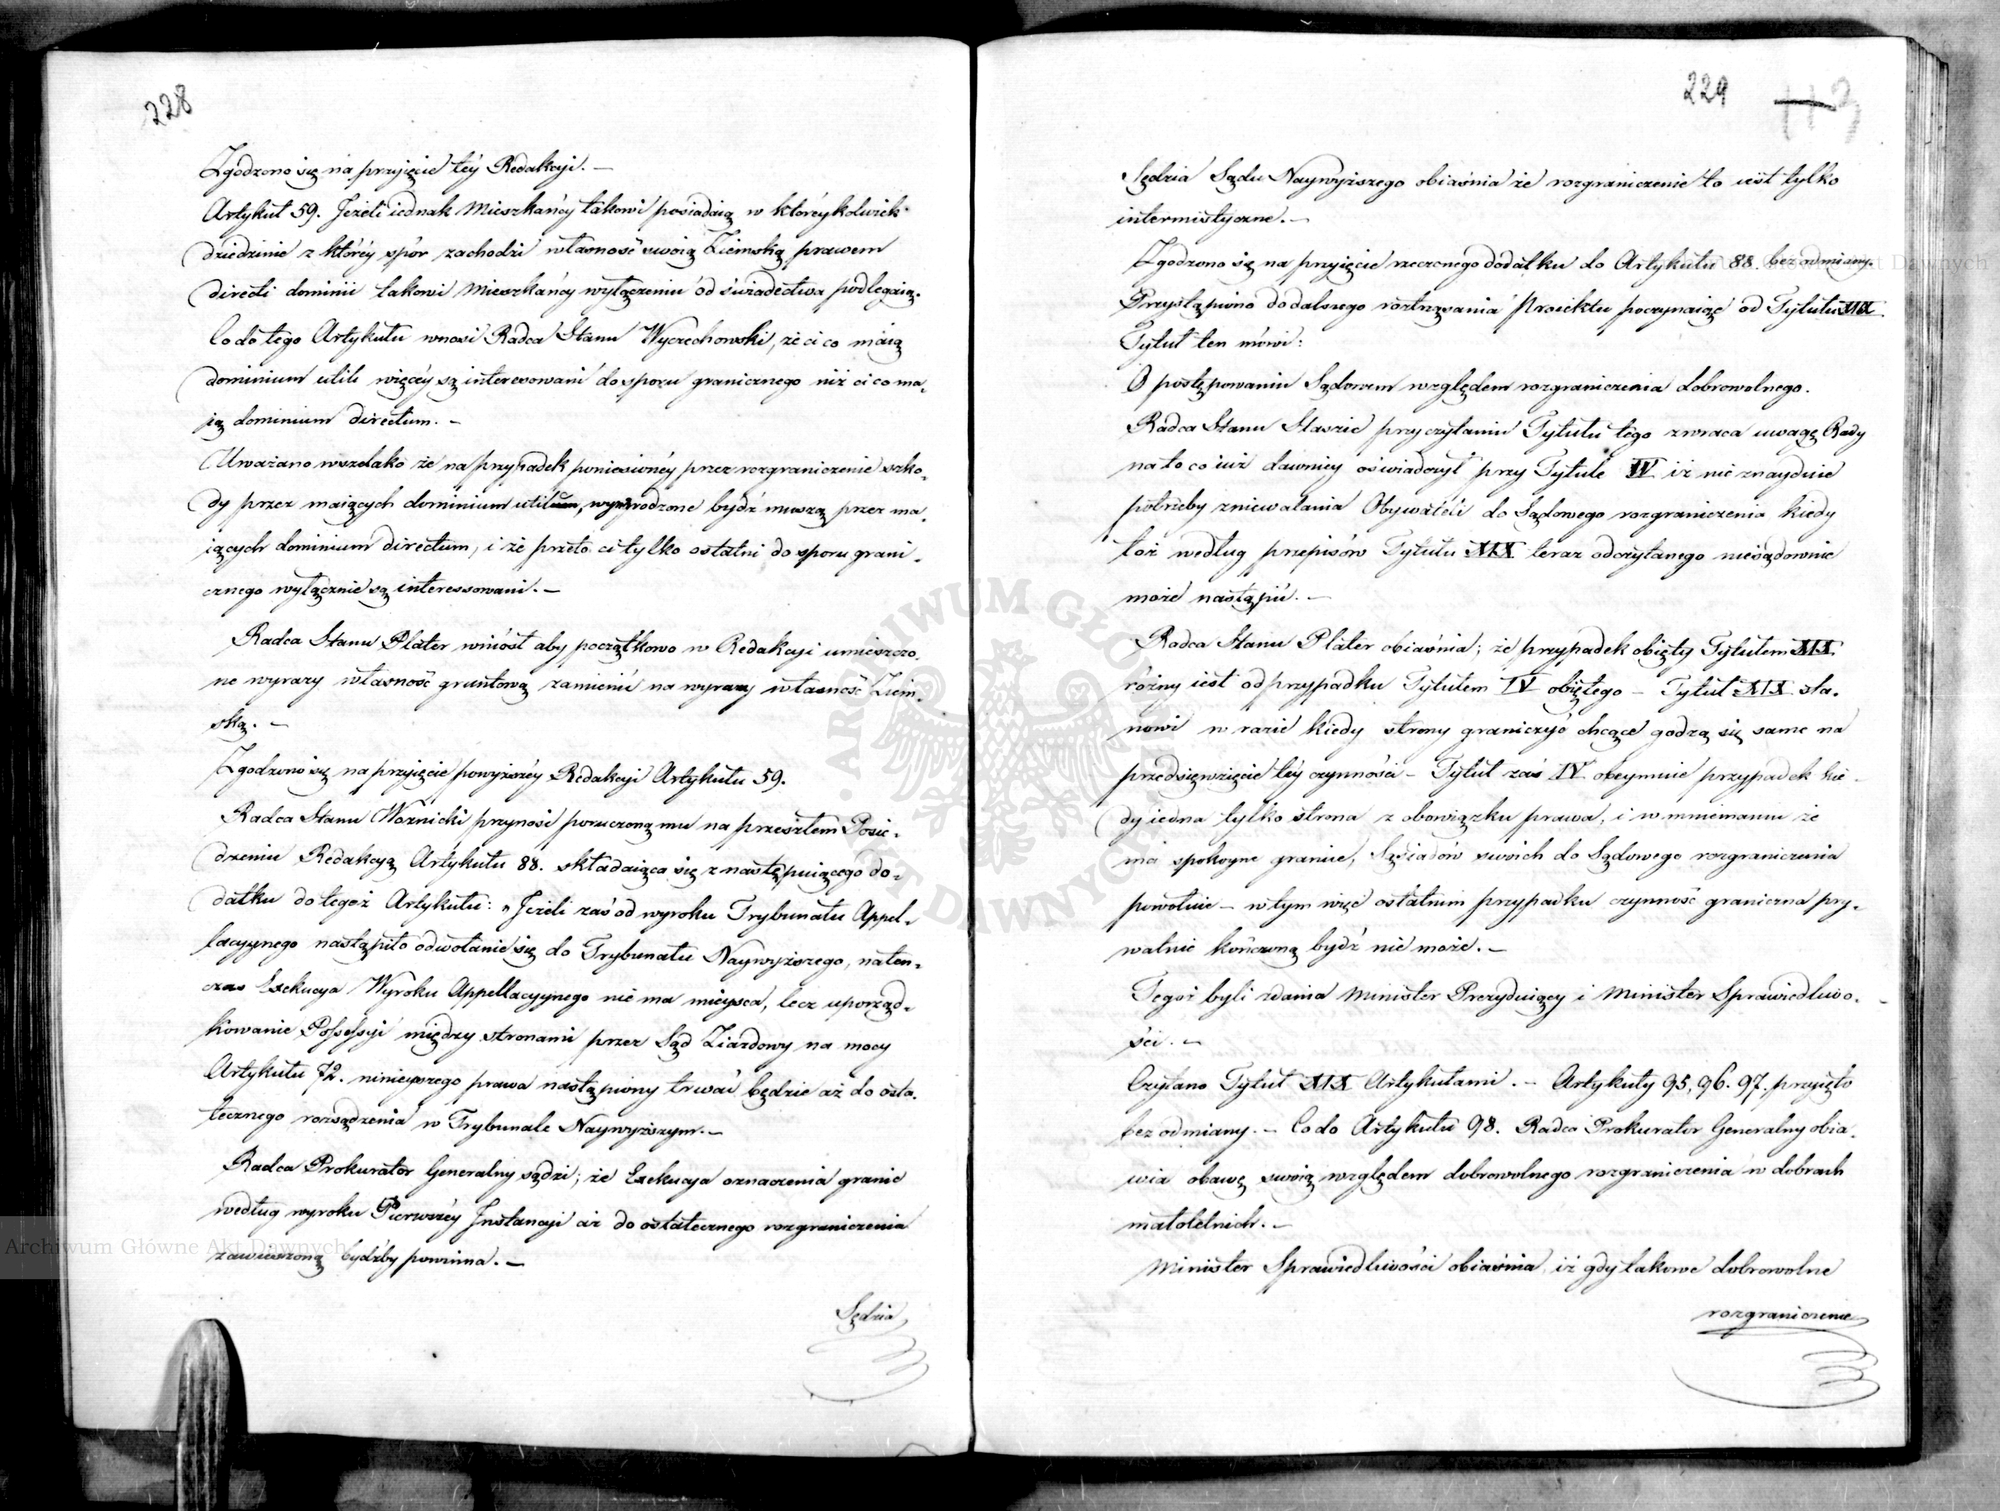 228
Zgodzono się na przyięcie téy Redakcyi. –
Artykuł 59. Jeżeli iednak Mieszkańcy takowi posiadaią w któréykolwiek
dziedzinie z któréy spór zachodzi własność swoią Ziemską prawem
directi dominii takowi Mieszkańcy wyłączeniu od świadectwa podlegaią.
Co do tego Artykułu wnosi Radca Stanu Wyczechowski, że ci co maią
dominium utile więcéy są interesowani do sporu granicznego niż ci co ma-
ją dominium directum. –
Uważano wszelako że na przypadek poniesionéy przez rozgraniczenie szko-
dy przez maiących dominium utile, wynadgrodzone bydź muszą przez ma-
iących dominium directum, i że przeto ci tylko ostatni do sporu grani-
cznego wyłącznie są interessowani. –
Radca Stanu Plater wniósł aby początkowo w Redakcyi umieszczo-
ne wyrazy własność gruntową zamienić na wyrazy własność Ziem-
ską. –
Zgodzono się na przyięcie powyższéy Redakcyi Artykułu 59.
Radca Stanu Woźnicki przynosi poruczoną mu na przeszłem Posie-
dzeniu Redakcyą Artykułu 88. składaiącą się z następuiącego do-
datku do tegoż Artykułu: „Jeżeli zaś od wyroku Trybunału Appel-
lacyynego nastąpiło odwołanie się do Trybunału Naywyższego, naten-
czas Exekucya Wyroku Appellacyynego nie ma mieysca, lecz uporząd-
kowanie Possessyi między stronami przez Sąd Ziazdowy na mocy
Artykułu 72. ninieyszego prawa nastąpiony trwać będzie aż do osta-
tecznego rozsądzenia w Trybunale Naywyższym. –
Radca Prokurator Generalny sądzi; że Exekucya oznaczenia granic
według wyroku Pierwszéy Instancyi aż do ostatecznego rozgraniczenia
zawieszoną bydźby powinna. –
Sędzia
229
113
Sędzia Sądu Naywyższego obiaśnia że rozgraniczenie to iest tylko
intermistyczne. –
Zgodzono się na przyięcie rzeczonego dodatku do Artykułu 88. bez odmiany.
Przystąpiono do dalszego roztrząsania Proiektu poczynaiąc od Tytułu XIX.
Tytuł ten mówi:
O postępowaniu Sądowem względem rozgraniczenia dobrowolnego.
Radca Stanu Staszic przy czytaniu Tytułu tego zwraca uwagę Rady
na to co iuż dawniey oświadczył przy Tytule IV iż nie znayduie
potrzeby zniewalania Obywateli do Sądowego rozgraniczenia kiedy
toż według przepisów Tytułu XIX teraz odczytanego niesądownie
może nastąpić. –
Radca Stanu Plater obiaśnia; że przypadek obięty Tytułem XIX
różny iest od przypadku Tytułem IV obiętego – Tytuł XIX sta-
nowi w razie kiedy strony graniczyć chcące godzą się same na
przedsięwzięcie téy czynności – Tytuł zaś IV obeymuie przypadek kie-
dy iedna tylko strona z obowiązku prawa, i w mniemaniu że
ma spokoyne granice, Sąsiadów swoich do Sądowego rozgraniczenia
powołuie – w tym więc ostatnim przypadku czynność graniczna pry-
watnie kończoną bydź nie może. –
Tegoż byli zdania Minister Prezyduiący i Minister Sprawiedliwo-
ści. –
Czytano Tytuł XIX Artykułami. – Artykuły 95, 96. 97. przyięto
bez odmiany. – Co do Artykułu 98. Radca Prokurator Generalny obia-
wia obawę swoią względem dobrowolnego rozgraniczenia w dobrach
małoletnich. –
Minister Sprawiedliwości obiaśnia, iż gdy takowe dobrowolne
rozgraniczenie
ARCHIWUM GŁÓWNE AKT DAWNYCH
Archiwum Główne Akt Dawnych